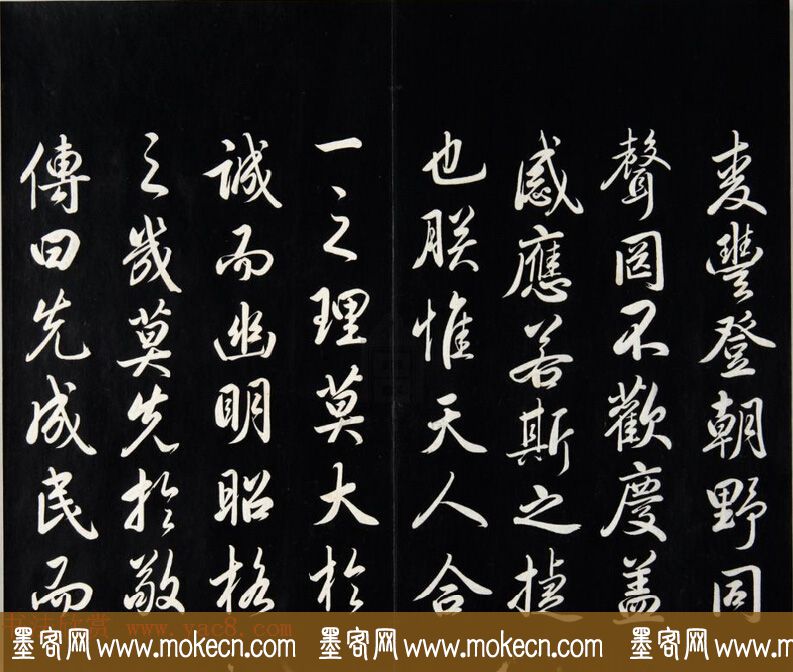 麦豐登朝野同
聲罔不歡慶盖
感應若斯之捷
也朕惟天人合
一之理莫大於
誠而幽明昭格
之幾莫先於敬
傳曰先成民而
书法欣赏 www.yac8.com
墨客网 www.mokecn.com 墨客网 www.mokecn.com 墨客网 www.mokecn.com